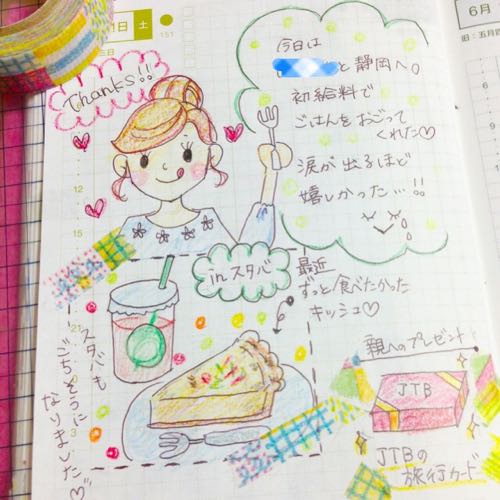 1日 土
1ST
6月
旧:五月
Thanks!!
今日は
と静岡へ。
初給料で
ごはんをおごって
くれた♡
涙が出るほど
嬉しかった…!!
12
15
in スタバ
最近
ずっと食べたかった
キッシュ♡
21
スタバも
ごちそうに
なりました♡
親へのプレゼント
JTB
JTBの
旅行カード